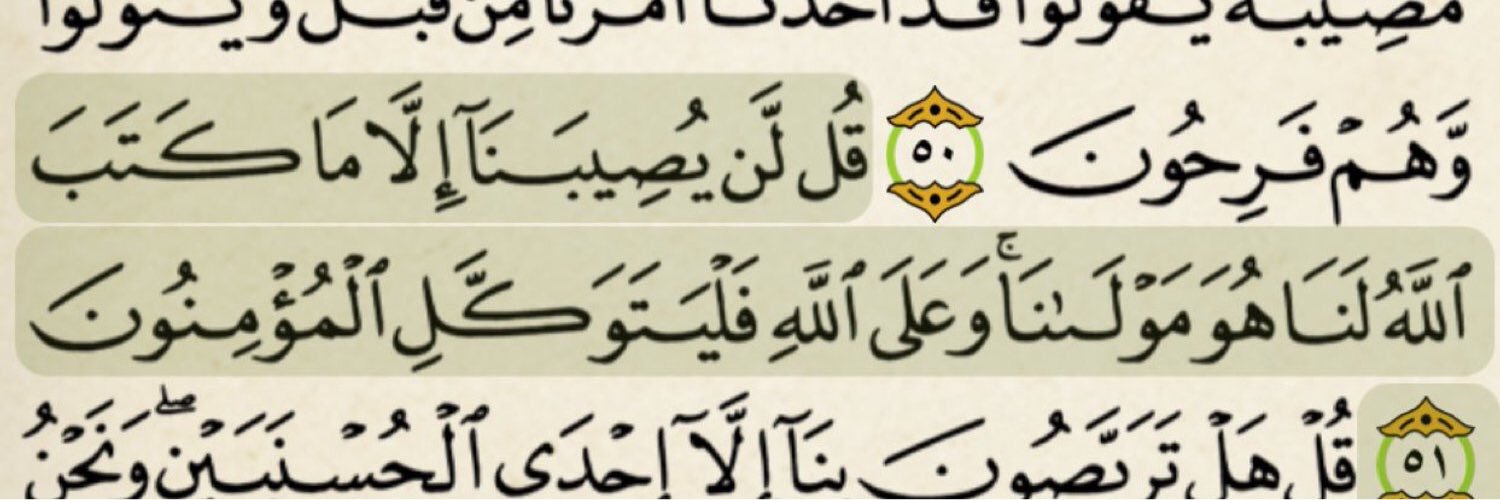 مُصِيبَةٌ يَقُولُوا۟ قَدْ أَخَذْنَآ أَمْرَنَا مِن قَبْلُ وَيَتَوَلَّوا۟
وَّهُمْ فَرِحُونَ ٥٠ قُل لَّن يُصِيبَنَآ إِلَّا مَا كَتَبَ
ٱللَّهُ لَنَا هُوَ مَوْلَىٰنَا ۚ وَعَلَى ٱللَّهِ فَلْيَتَوَكَّلِ ٱلْمُؤْمِنُونَ
٥١ قُلْ هَلْ تَرَبَّصُونَ بِنَآ إِلَّآ إِحْدَى ٱلْحُسْنَيَيْنِ ۖ وَنَحْنُ